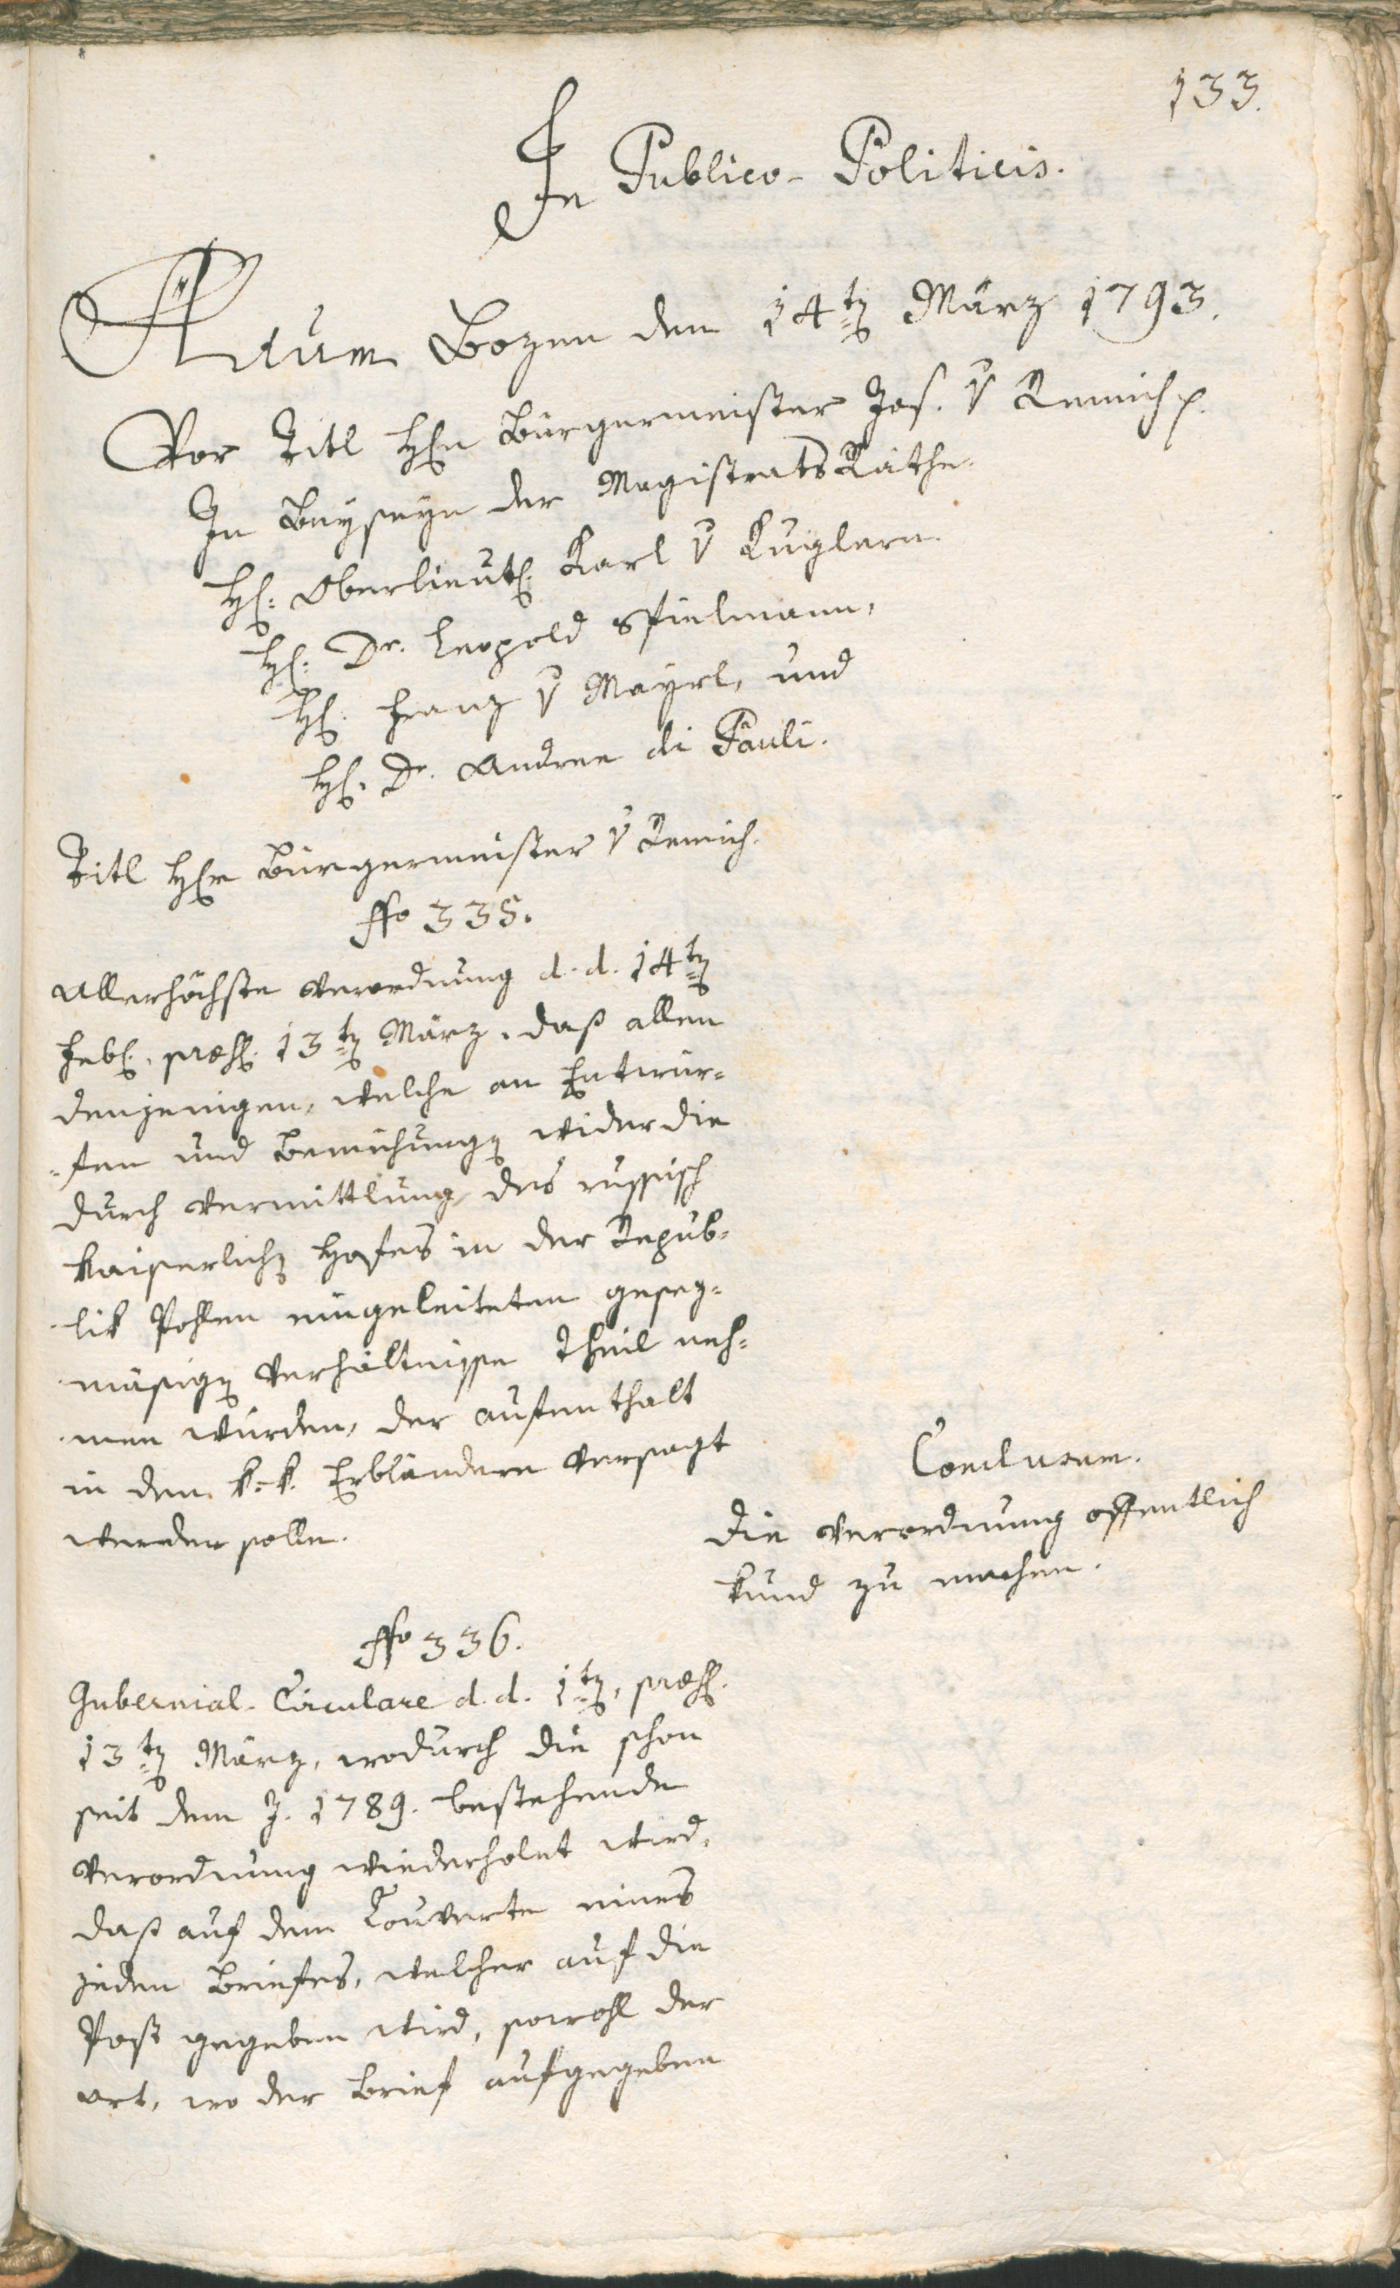 133.
In Publico-Politicis.
Actum Bozen den 14tn März 1793.
Vor Titl Hrn Bürgermeister Jos. v Remich p.
In Beyseyn der Magistrats Räthe.
Hr. Oberlieut. Karl v Kuglern.
Hr. Dr. Leopold Spielmann,
Hr. Franz v Mayrl, und
Hr. Dr. Andree di Pauli.
Titl Hr Bürgermeister v Remich.
No 335.
Allerhöchste Verordnung d. d. 14tn
Feb. præs. 13tn März, daß allen
denjenigen, welche an Entwür=
=fen und Bemühungn wider die
durch Vermittlung des russisch
kaiserlichn Hofes in der Repub=
lik Pohlen eingeleiteten gesez=
mäsign Verhältnisse Theil neh=
men würden, der Aufenthalt
in den k. k. Erbländern versagt
werden solle.
Conclusum.
Die Verordnung offentlich
kund zu machen.
No 336.
Gubernial-Circulare d. d. 1tn, præs.
13tn März, wodurch die schon
seit dem J. 1789. bestehende
Verordnung wiederholet wird,
daß auf dem Couverte eines
jeden Briefes, welcher auf die
Post gegeben wird, sowohl der
Ort, wo der Brief aufgegeben